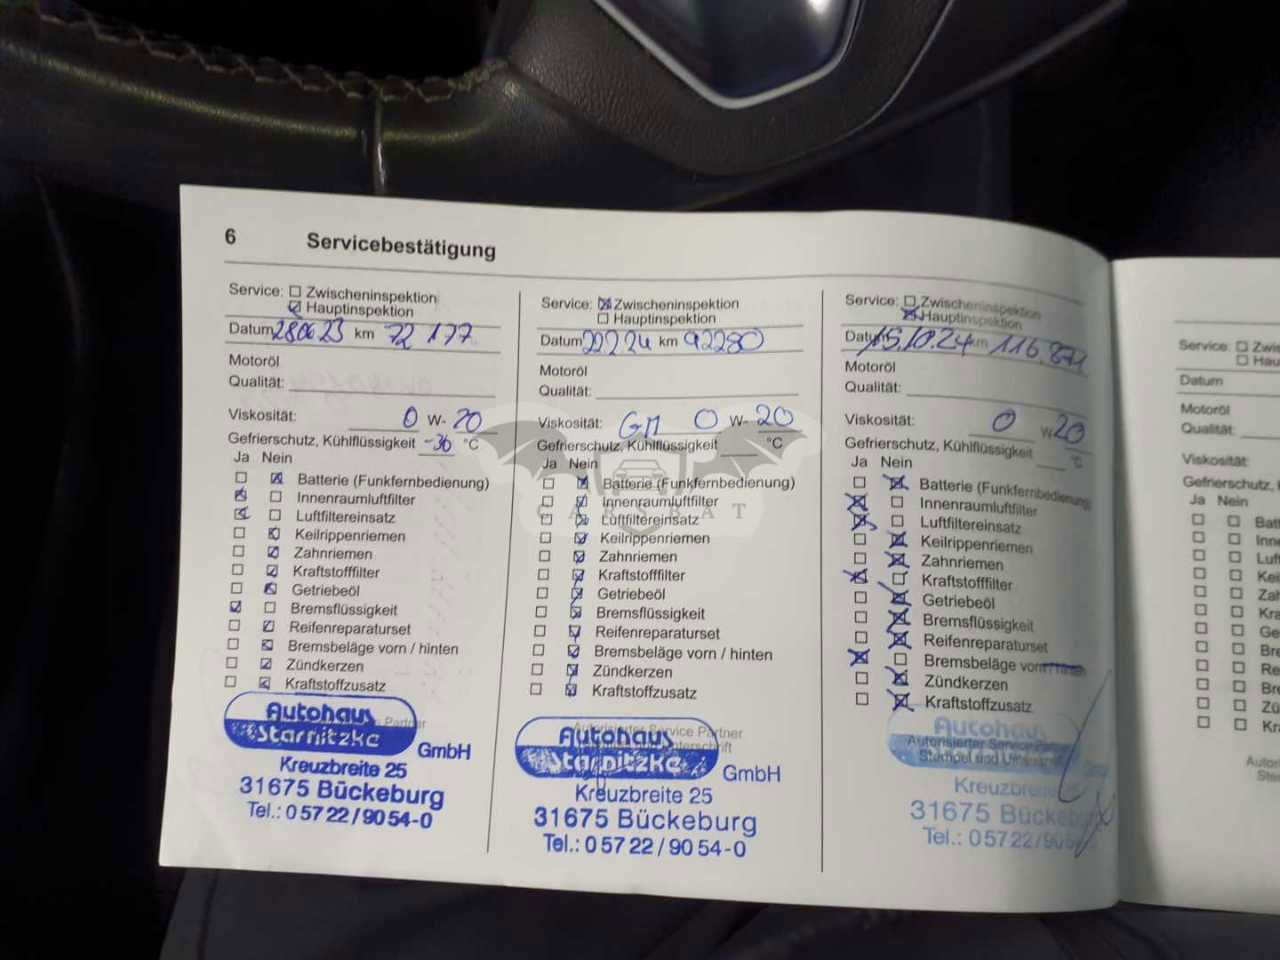 6 Servicebestätigung
Service: Zwischeninspektion
Hauptinspektion
Datum 280623 km 72177
Motoröl
Qualität:
Viskosität: 0 W- 20
Gefrierschutz, Kühlflüssigkeit -36 °C
Ja Nein
Batterie (Funkfernbedienung)
Innenraumluftfilter
Luftfiltereinsatz
Keilrippenriemen
Zahnriemen
Kraftstofffilter
Getriebeöl
Bremsflüssigkeit
Reifenreparaturset
Bremsbeläge vorn / hinten
Zündkerzen
Kraftstoffzusatz
Partner
Autohaus
Starnitzke
GmbH
Kreuzbreite 25
31675 Bückeburg
Tel.: 05722/9054-0
Service: Zwischeninspektion
Hauptinspektion
Datum 22224 km 92280
Motoröl
Qualität:
Viskosität: GM 0 W- 20
Gefrierschutz, Kühlflüssigkeit °C
Ja Nein
Batterie (Funkfernbedienung)
Innenraumluftfilter
Luftfiltereinsatz
Keilrippenriemen
Zahnriemen
Kraftstofffilter
Getriebeöl
Bremsflüssigkeit
Reifenreparaturset
Bremsbeläge vorn / hinten
Zündkerzen
Kraftstoffzusatz
Autorisierter Service Partner
Autohaus
Starnitzke
GmbH
Kreuzbreite 25
31675 Bückeburg
Tel.: 05722/9054-0
Service: Zwischeninspektion
Hauptinspektion
Datum 15.10.24 km 116.871
Motoröl
Qualität:
Viskosität: 0 W 20
Gefrierschutz, Kühlflüssigkeit °C
Ja Nein
Batterie (Funkfernbedienung)
Innenraumluftfilter
Luftfiltereinsatz
Keilrippenriemen
Zahnriemen
Kraftstofffilter
Getriebeöl
Bremsflüssigkeit
Reifenreparaturset
Bremsbeläge vorn / hinten
Zündkerzen
Kraftstoffzusatz
Autohaus
Autorisierter Service Partner
Stempel und Unterschrift
Kreuzbreite
31675 Bückeburg
Tel.: 05722/90
Service: Zwi
Hau
Datum
Motoröl
Qualität:
Viskosität:
Gefrierschutz,
Ja Nein
Batt
Inne
Luft
Keil
Zah
Kra
Get
Bre
Rei
Bre
Zü
Kra
Autor
Ste
CARSBAT